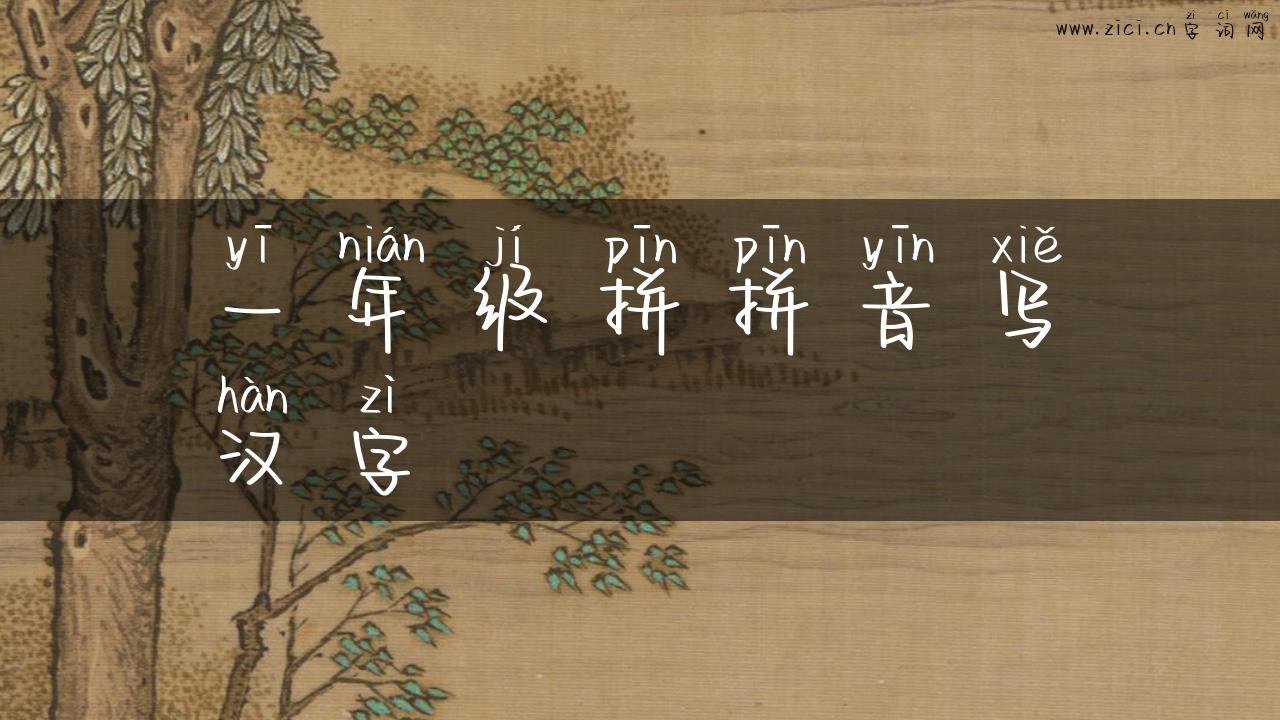 zì cí wǎng
www.zici.cn 字词网
yī nián jí pīn pīn yīn xiě
一年级拼拼音写
hàn zì
汉字